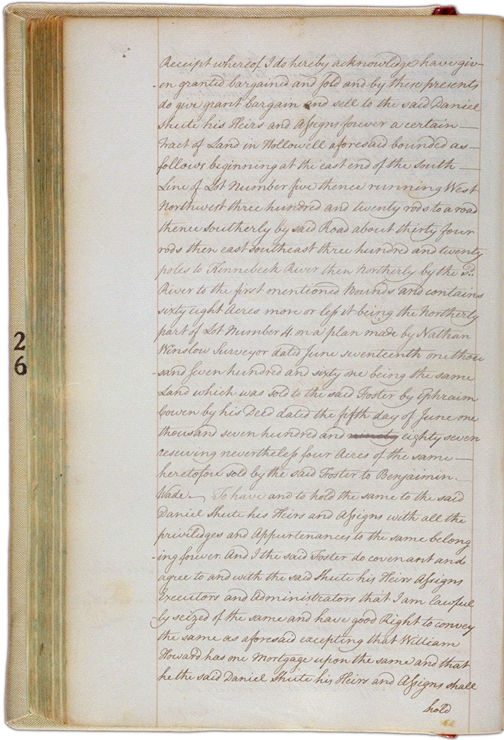 Receipt whereof I do hereby acknowledge have giv-
en granted bargained and sold and by these presents
do give grant bargain and sell to the said Daniel
Shute his Heirs and Assigns forever a certain
Tract of Land in Hollowell aforesaid bounded as
follows beginning at the east end of the South
Line of Lot Number five thence running West
Northwest three hundred and twenty rods to a road
thence Southerly by said Road about thirty four
rods then east southeast three hundred and twenty
poles to Kinnebeck River then Northerly by the Sd.
River to the first mentioned Bounds and contains
sixty eight Acres more or less it being the Northerly
part of Lot Number 4. on a plan made by Nathan
Winslow Surveyor dated June seventeenth one thou
sand seven hundred and sixty one being the same
Land which was sold to the said Foster by Ephraim
Cowen by his Deed dated the fifth day of June one
thousand seven hundred and eighty seven
reserving nevertheless four Acres of the same
heretofore sold by the said Foster to Benjaimin
Wade To have and to hold the same to the said
Daniel Shute his Heirs and Assigns with all the
priviledges and Appurtenances to the same belong
ing forever. And I the said Foster do covenant and
agree to and with the said Shute his Heirs Assigns
Executors and Administrators that I am lawful
ly seized of the same and have good Right to convey
the same as aforesaid excepting that William
Howard has one Mortgage upon the same and that
he the said Daniel Shute his Heirs and Assigns shall
hold
26